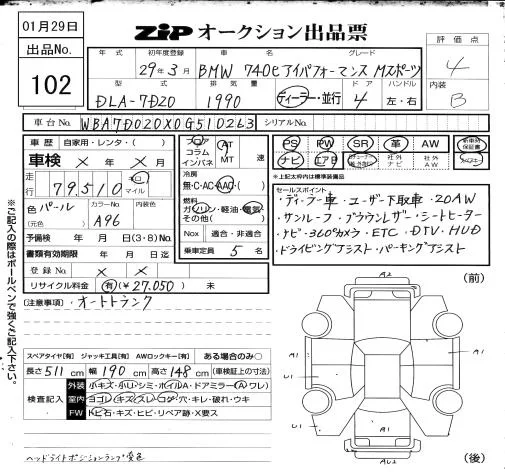 01月29日
ZIP オークション出品票
出品No.
102
年式 初年度登録 車名 グレード
29年3月 BMW 740e アイパフォーマンス Mスポーツ
評価点
4
内装
B
型式 排気量 ドア ハンドル
DLA-7D20 1990 ディーラー・並行 4 左・右
車台No. WBA7D020X0G510263 シリアルNo.
車歴 自家用・レンタ・( )
車検 × 年 × 月
走行 79,510 km マイル
フロア コラム インパネ
AT MT 速
冷房
無・C・AC・AAC・( )
燃料
ガソリン・軽油・電気
その他( )
Nox 適合・非適合
乗車定員 5 名
PS PW SR 革 AW
ナビ エアB
社外ナビ 社外AW
新車時保証書
※上記太わ内は標準装備品
色 パール
(元色)
カラーNo.
A96
内装色
予備検 年 月 日(3・8)No.
書類有効期限 年 月 日迄
登録No. × ×
リサイクル料金 有(¥27,050) 未
セールスポイント
・ディーラー車・ユーザー下取車・20AW
・サンルーフ・ブラウンレザー・シートヒーター
・ナビ・360°カメラ・ETC・DTV・HUD
・ドライビングアシスト・パーキングアシスト
(注意事項)・オートトランク
スペアタイヤ[有] ジャッキ工具[有] AWロックキー[有] ある場合のみ○
長さ511cm 幅190cm 高さ148cm (車検証上の寸法)
検査記入
外装 小キズ・小U・シミ・ホイルA・ドアミラー(A・ワレ)
室内 ヨゴレ・キズ・スレ・コゲ・穴・キレ・破れ・ウキ
FW トビ石・キズ・ヒビ・リペア跡・X要ス
ヘッドライトポジションランプ変色
※ご記入の際はボールペンで強くご記入下さい。
(前)
A2
A1
A1
U1
U1
A1
AU2
(後)